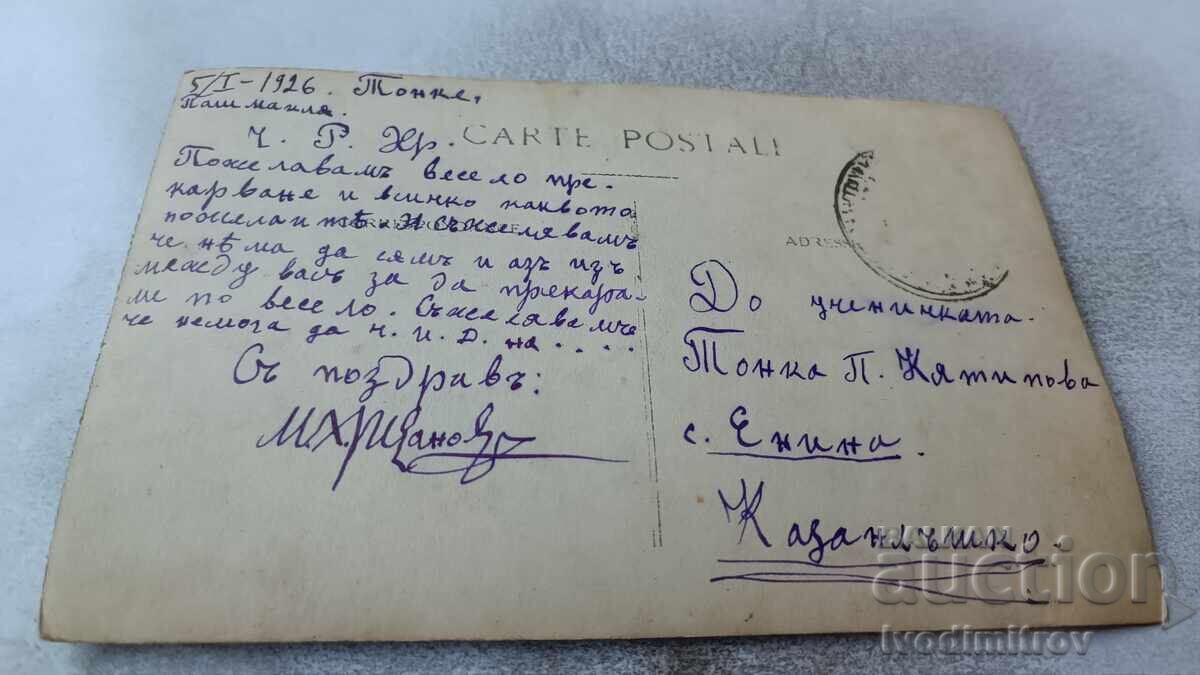 5/I-1926. Тонке,
Пашмакля.
Ч. Р. Хр.
CARTE POSTALE
Пожелавамъ весело пре-
карване и всичко каквото
пожелаи тѣ. И съжелявамъ
че нѣма да сямъ и азъ изъ
между васъ за да прекара-
ме по весело. Съжелявамъ
че немога да ч. и. Д. на . . . .
Съ поздравъ:
ADRESSE
До ученичката.
Тонка П. Кятипова
с. Енина.
Казанлъшко.
BALKAN
auction
ivodimitrov